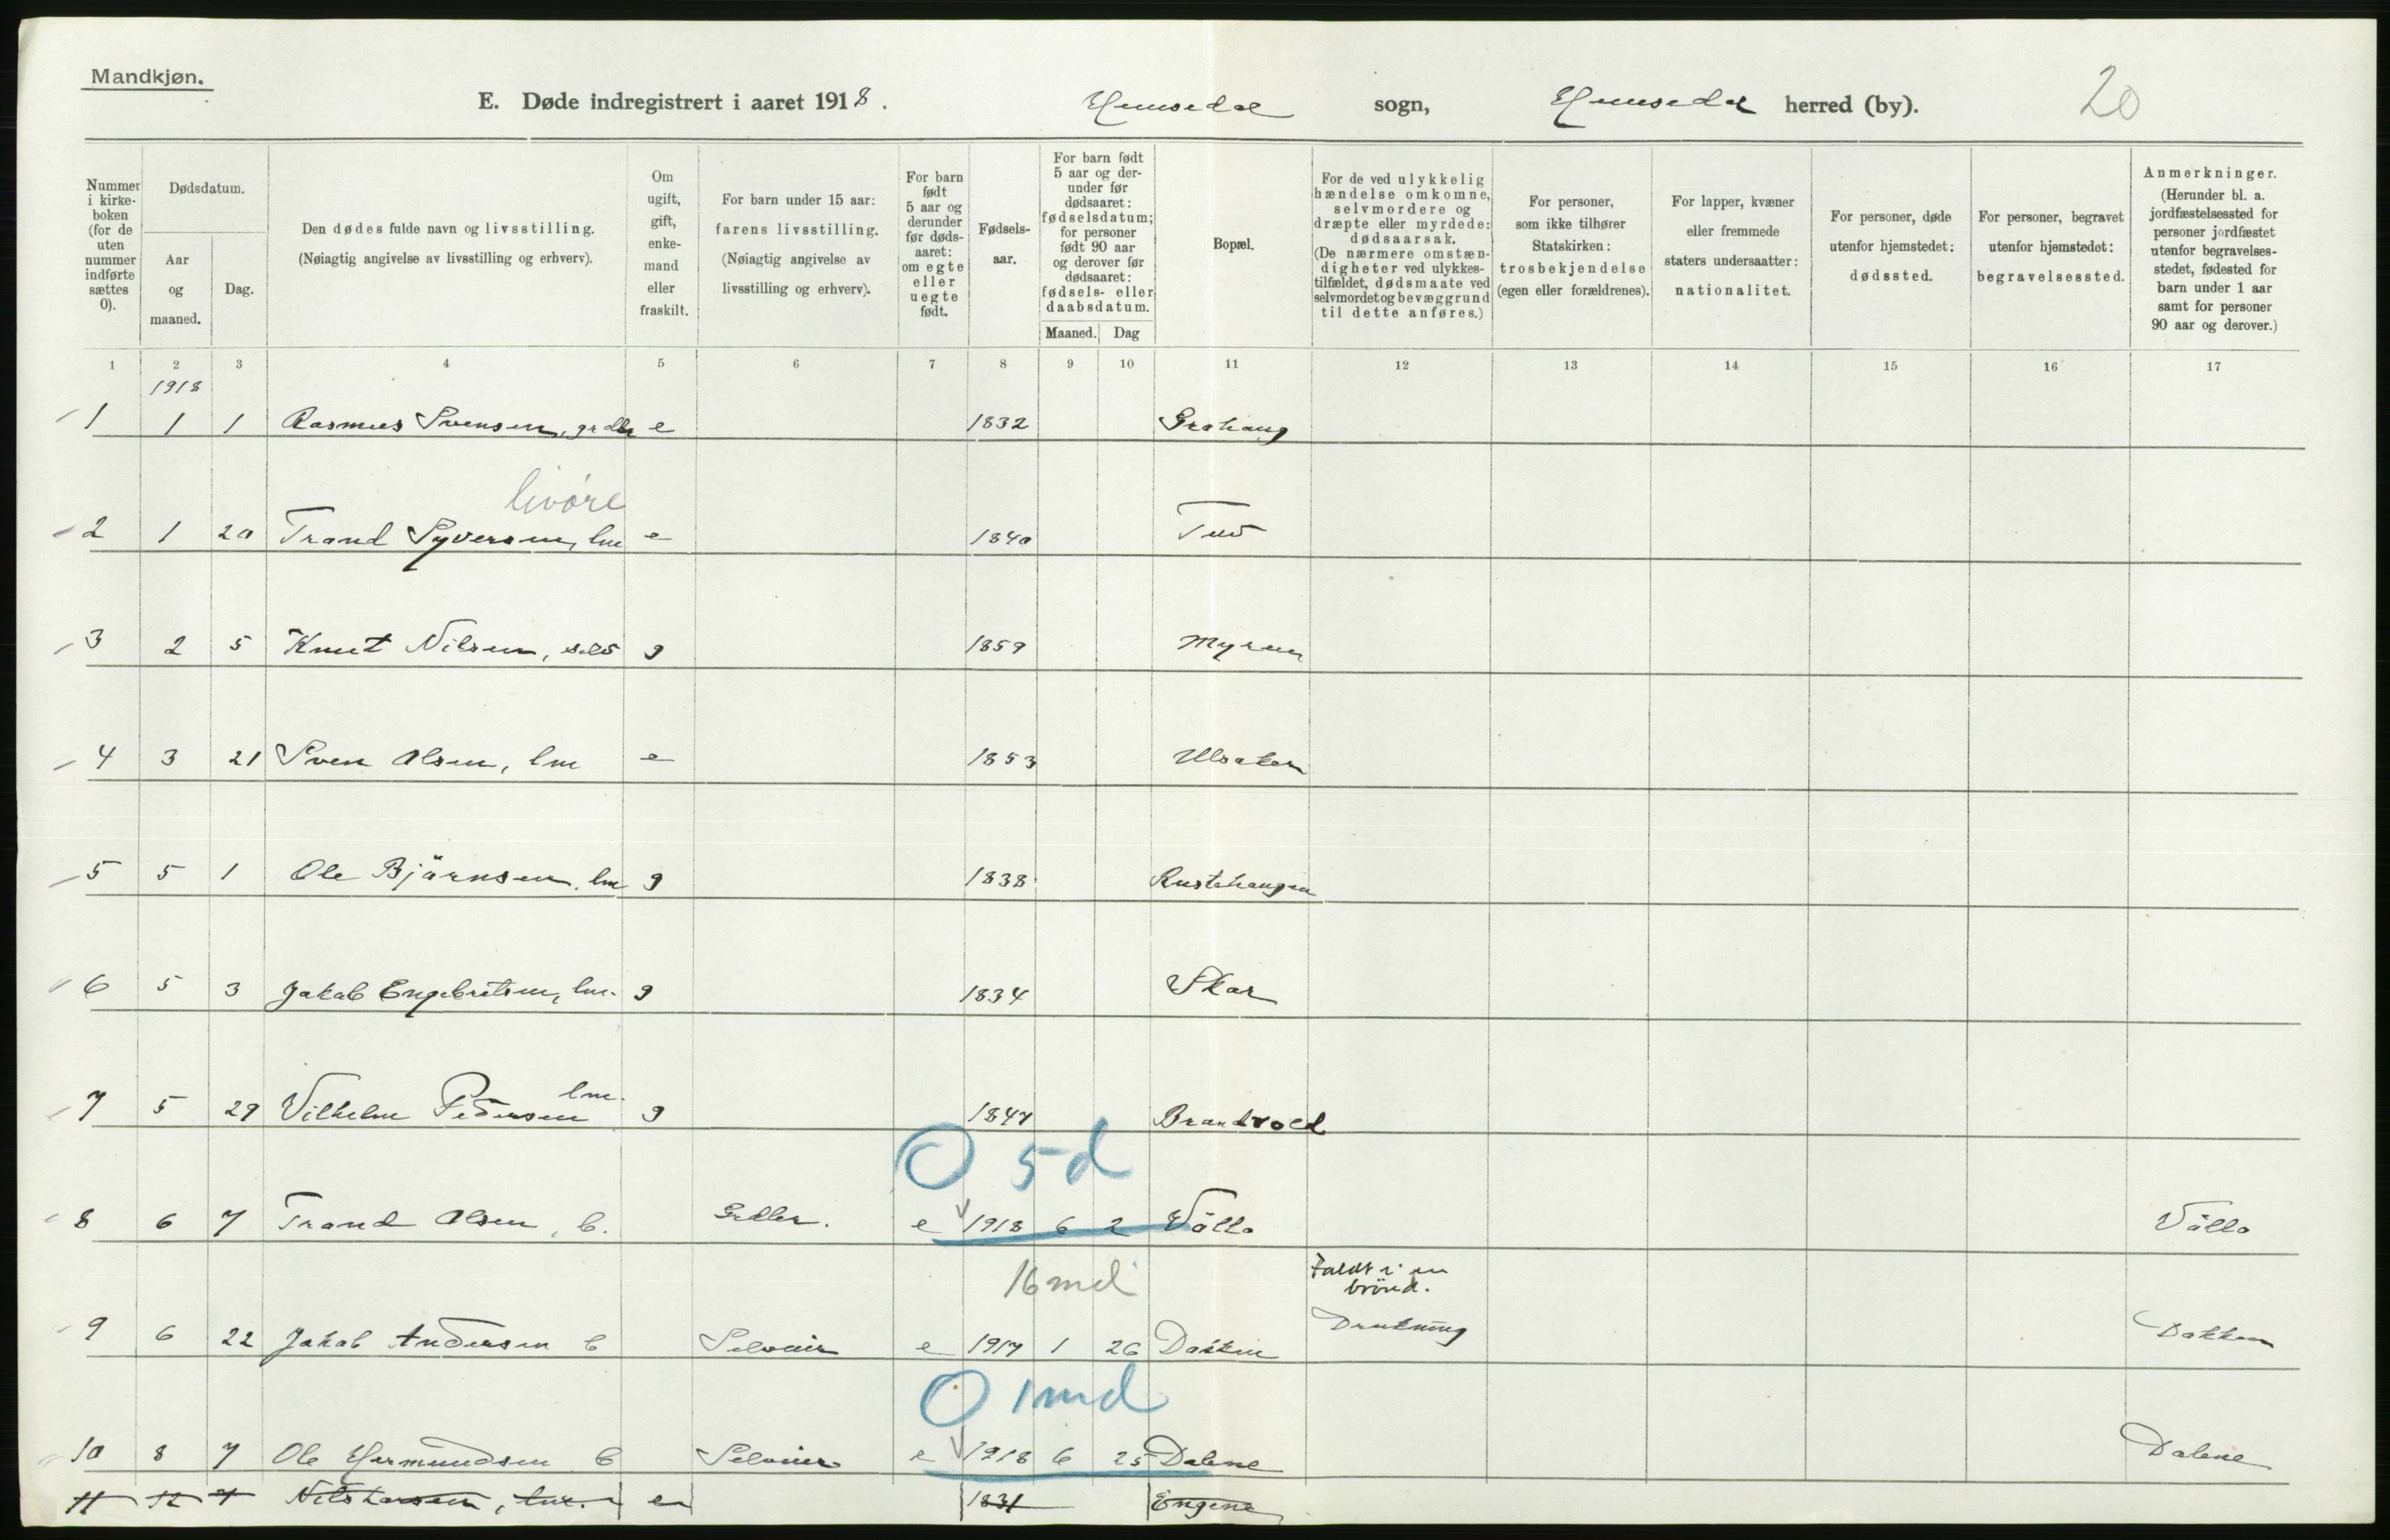 Mandkjøn.
E. Døde indregistrert i aaret 1918. Hemsedal sogn, Hemsedal herred (by). 20
Nummer i kirke- boken (for de uten nummer indførte sættes 0).
Dødsdatum.
Aar og maaned.
Dag.
Den dødes fulde navn og livsstilling.
(Nøiagtig angivelse av livsstilling og erhverv).
Om ugift, gift, enke- mand eller fraskilt.
For barn under 15 aar: farens livsstilling. (Nøiagtig angivelse av livsstilling og erhverv).
For barn født 5 aar og derunder før døds- aaret: om egte eller uegte født.
Fødsels- aar.
For barn født 5 aar og der- under før dødsaaret: fødselsdatum; for personer født 90 aar og derover før dødsaaret: fødsels- eller daabsdatum.
Maaned. Dag
Bopæl.
For de ved ulykkelig hændelse omkomne, selvmordere og dræpte eller myrdede: dødsaarsak. (De nærmere omstæn- digheter ved ulykkes- tilfældet, dødsmaate ved selvmord et og bevæggrund til dette anføres.)
For personer, som ikke tilhører Statskirken: trosbekjendelse (egen eller forældrenes).
For lapper, kvæner eller fremmede staters undersaatter: nationalitet.
For personer, døde utenfor hjemstedet: dødssted.
For personer, begravet utenfor hjemstedet: begravelsessted.
Anmerkninger. (Herunder bl. a. jordfæstelsessted for personer jordfæstet utenfor begravelses- stedet, fødested for barn under 1 aar samt for personer 90 aar og derover.)
1 2 3 4 5 6 7 8 9 10 11 12 13 14 15 16 17
1918
1 1 1 Rasmus Svensen, grdbr e 1832 Grøhaug
livøre
2 1 20 Trond Syversen, lm e 1840 Tuv
3 2 5 Knut Nilsen, selv g 1859 Myren
4 3 21 Sven Olsen, lm e 1853 Ulsaker
5 5 1 Ole Björnsen, lm g 1838 Rustehaugen
6 5 3 Jakob Engebretsen, lm. g 1834 Skar
lm.
7 5 29 Vilhelm Pedersen g 1847 Brandvold
O 5 d
8 6 7 Trond Olsen, b. Grdbr. e 1918 6 2 Vålla Vålla
16 md
Faldt i en
brönd.
9 6 22 Jakob Andersen b Selveier e 1917 1 26 Dokken Drukning Dokken
O 1 md
10 8 7 Ole Hermundsen b Selveier e 1918 6 25 Dalene Dalene
11 12 7 Nils Larsen, lm. em 1831 Engene